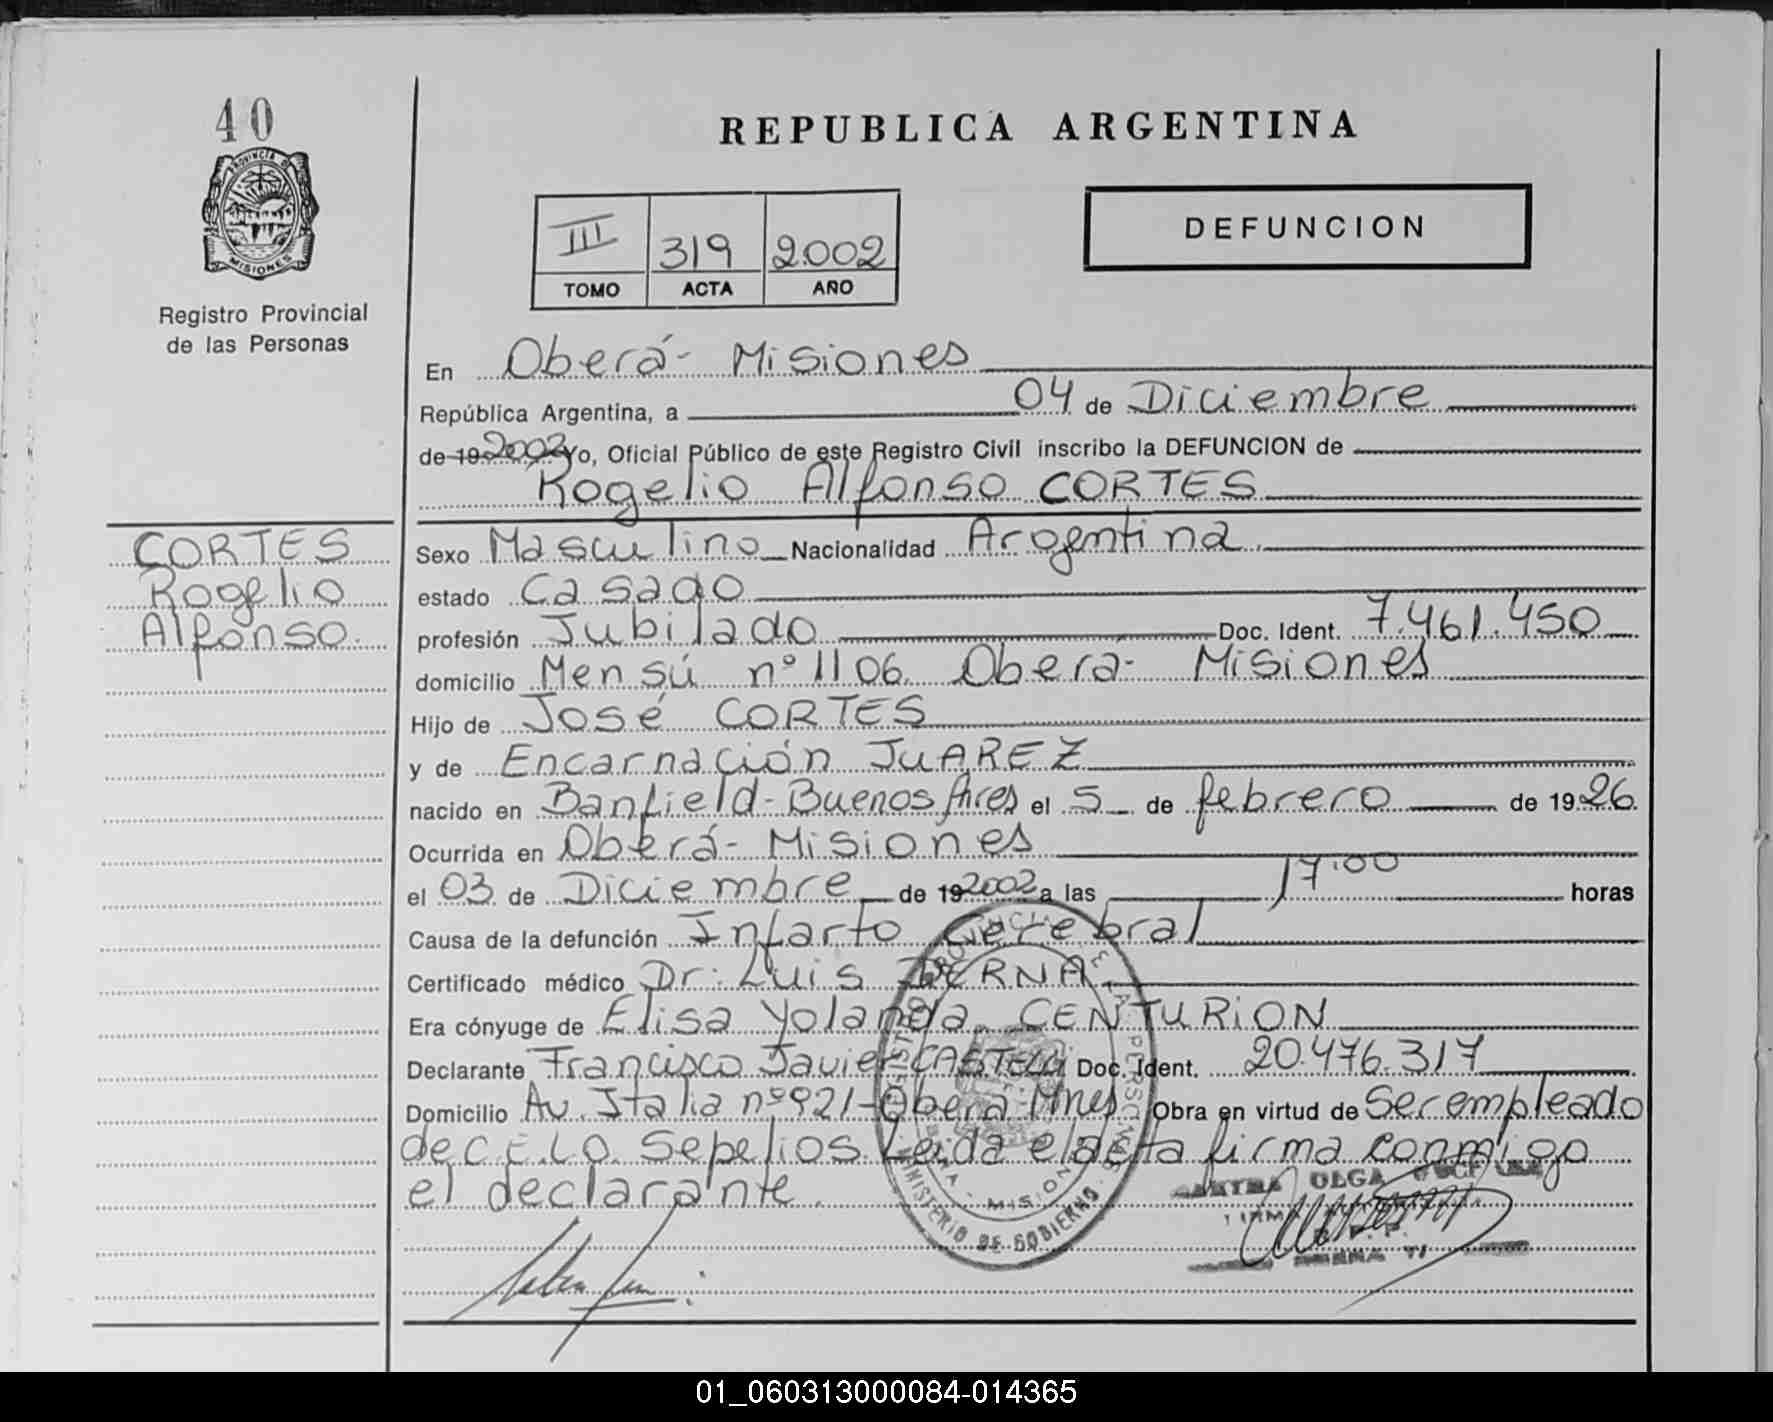 40
PROVINCIA DE
MISIONES
Registro Provincial
de las Personas
REPUBLICA ARGENTINA
DEFUNCION
III 319 2.002
TOMO ACTA AÑO
En Oberá - Misiones
República Argentina, a 04 de Diciembre
de 19 2002 Yo, Oficial Público de este Registro Civil inscribo la DEFUNCION de
Rogelio Alfonso CORTES
CORTES
Rogelio
Alfonso.
Sexo Masculino Nacionalidad Argentina.
estado Casado
profesión Jubilado Doc. Ident. 7.461.450
domicilio Mensú nº 1106. Oberá - Misiones
Hijo de José CORTES
y de Encarnación JUAREZ
nacido en Banfield - Buenos Aires el 5 de febrero de 19 26
Ocurrida en Oberá - Misiones
el 03 de Diciembre de 19 2002 a las 17:00 horas
Causa de la defunción Infarto Cerebral
Certificado médico Dr: Luis BERNA
Era cónyuge de Elisa Yolanda CENTURION
Declarante Francisco Javier Doc. Ident. 20.476.317
Domicilio Av. Italia nº 921 - Oberá Mnes Obra en virtud de Ser empleado
de C.E.L.O. Sepelios. Leida el acta firma conmigo
el declarante.
OLGA
MINISTERIO DE GOBIERNO
01_060313000084-014365